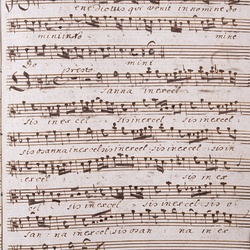 enedictus qui venit in nomine Do
mini in no mine
Do mini
presto
sanna in excel
sis in excel sis in excel sis in excel
sis osanna in excel sis in excel sis osanna in excel sis o sis in
excel sis in ex
cel sis in excel sis in excel sis o
san na in excel sis o san na in ex